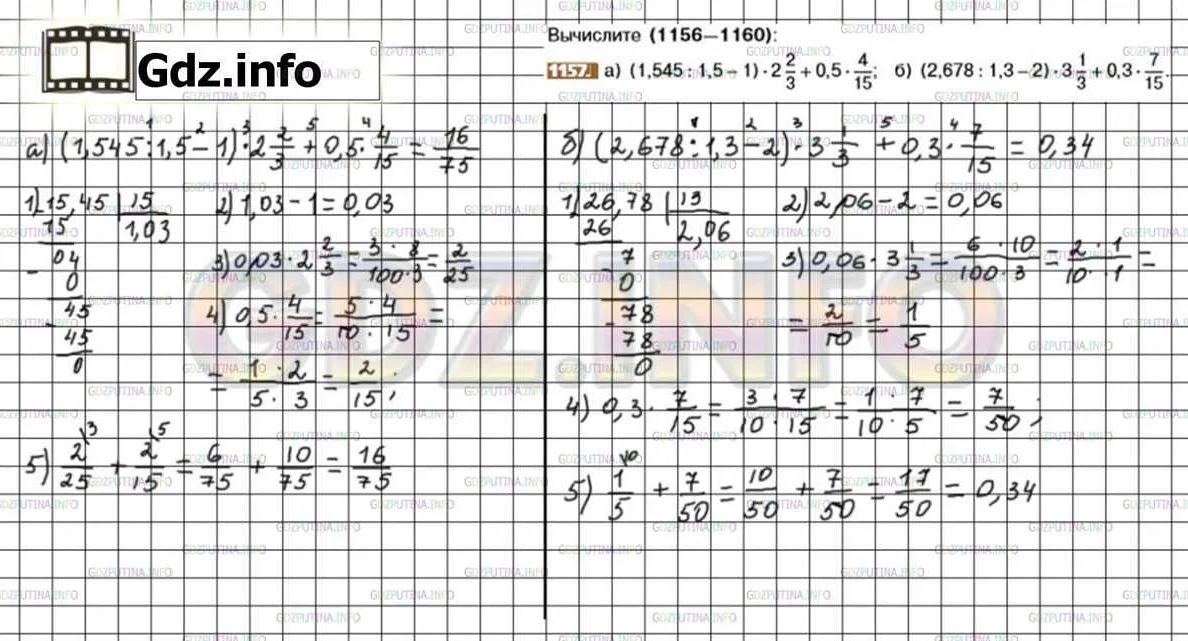 Gdz.info
Вычислите (1156—1160):
1157. а) (1,545 : 1,5 − 1) · 2 2/3 + 0,5 · 4/15; б) (2,678 : 1,3 − 2) · 3 1/3 + 0,3 · 7/15.
а) (1,545 : 1,5 − 1) · 2 2/3 + 0,5 · 4/15 = 16/75
1) 15,45 | 15
15 1,03
04
0
45
45
0
2) 1,03 − 1 = 0,03
3) 0,03 · 2 2/3 = 3 · 8/100 · 3 = 2/25
4) 0,5 · 4/15 = 5 · 4/10 · 15 =
= 1 · 2/5 · 3 = 2/15;
5) 2/25 + 2/15 = 6/75 + 10/75 = 16/75
б) (2,678 : 1,3 − 2) · 3 1/3 + 0,3 · 7/15 = 0,34
1) 26,78 | 13
26 2,06
7
0
78
78
0
2) 2,06 − 2 = 0,06
3) 0,06 · 3 1/3 = 6 · 10/100 · 3 = 2 · 1/10 · 1 =
= 2/10 = 1/5
4) 0,3 · 7/15 = 3 · 7/10 · 15 = 1 · 7/10 · 5 = 7/50;
5) 1/5 + 7/50 = 10/50 + 7/50 = 17/50 = 0,34
GDZ.INFO
GDZPUTINA.INFO